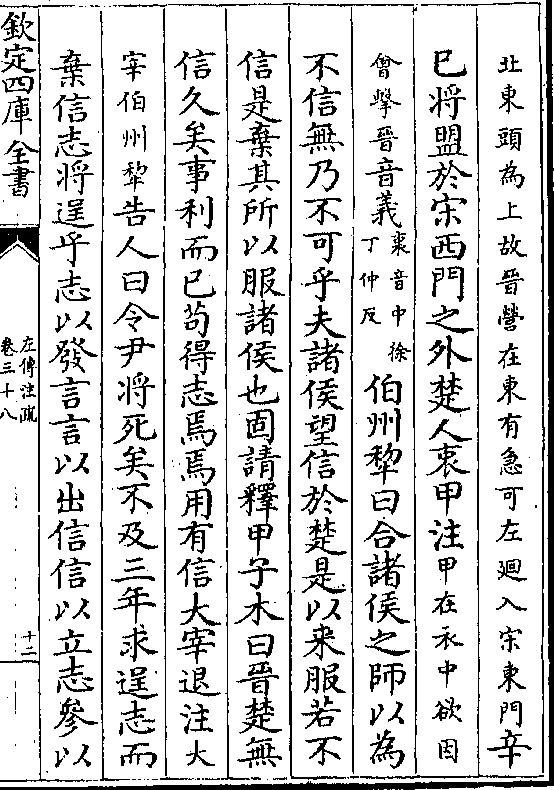 北東頭為上故晉營在東有急可左廻入宋東門辛
巳將盟於宋西門之外楚人衷甲注甲在衣中欲因
會擊晉音義衷音中徐丁仲反伯州犂曰合諸侯之師以為
不信無乃不可乎夫諸侯望信於楚是以來服若不
信是棄其所以服諸侯也固請釋甲子木曰晉楚無
信久矣事利而已茍得志焉焉用有信大宰退注大
宰伯州犂告人曰令尹將死矣不及三年求逞志而
棄信志將逞乎志以發言言以出信信以立志參以
欽定四庫全書
左傳注疏
卷三十八
十二